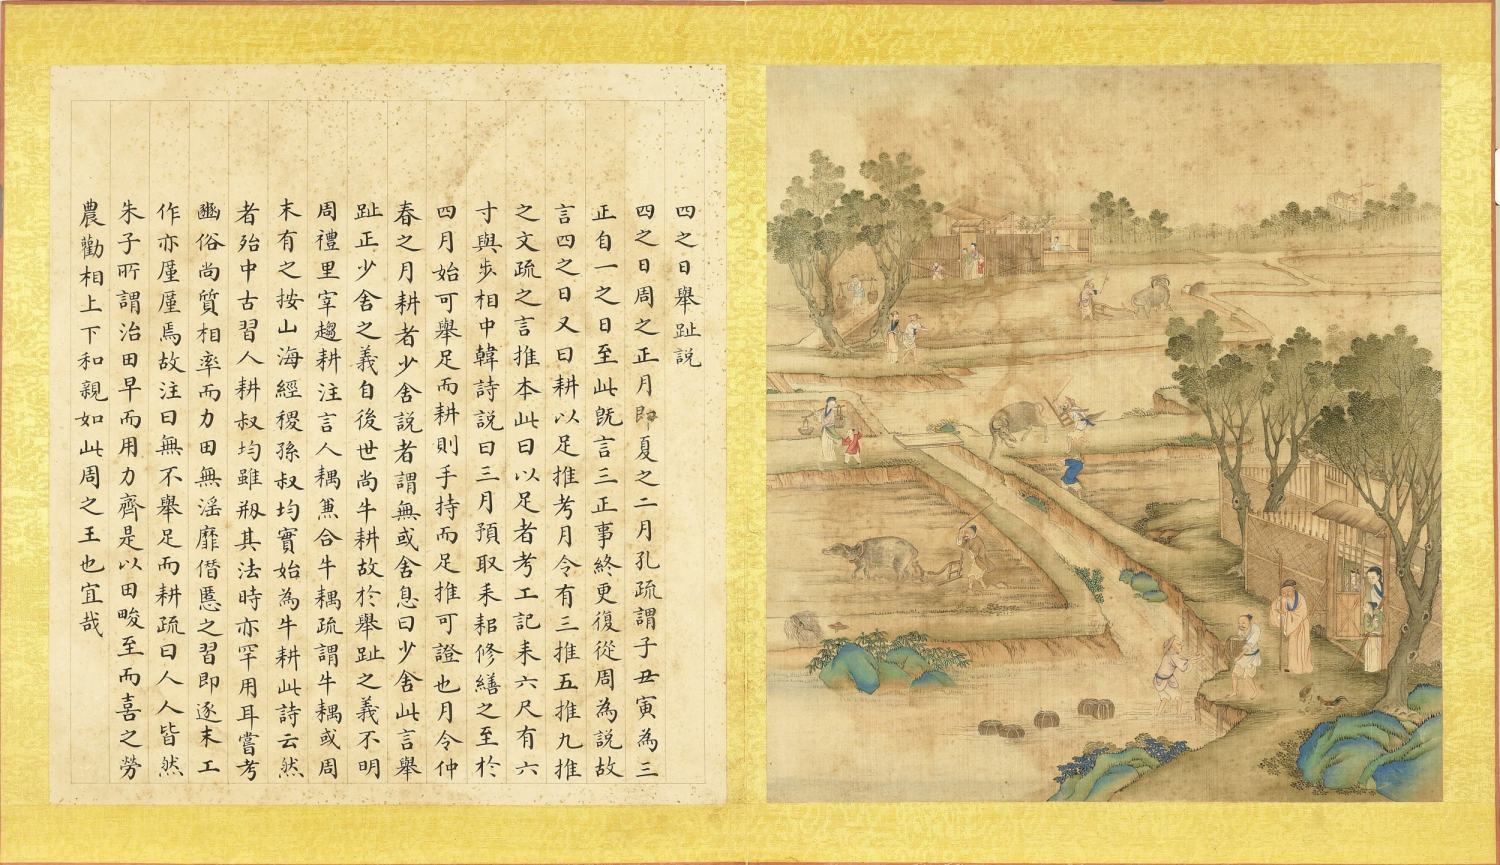 四之日舉趾説
四之日周之正月即夏之二月孔疏謂子丑寅為三
正自一之日至此既言三正事終更復從周為説故
言四之日又曰耕以足推考月令有三推五推九推
之文疏之言推本此曰以足者考工記耒六尺有六
寸與步相中韓詩説曰三月預取耒耜修繕之至於
四月始可舉足而耕則手持而足推可證也月令仲
春之月耕者少舍説者謂無或舍息曰少舍此言舉
趾正少舍之義自後世尚牛耕故於舉趾之義不明
周禮里宰趨耕注言人耦兼合牛耦疏謂牛耦或周
末有之按山海經稷孫叔均實始為牛耕此詩云然
者殆中古習人耕叔均雖剏其法時亦罕用耳嘗考
豳俗尚質相率而力田無淫靡僭慝之習即逐末工
作亦廑廑焉故注曰無不舉足而耕疏曰人人皆然
朱子所謂治田早而用力齊是以田畯至而喜之勞
農勸相上下和親如此周之王也宜哉